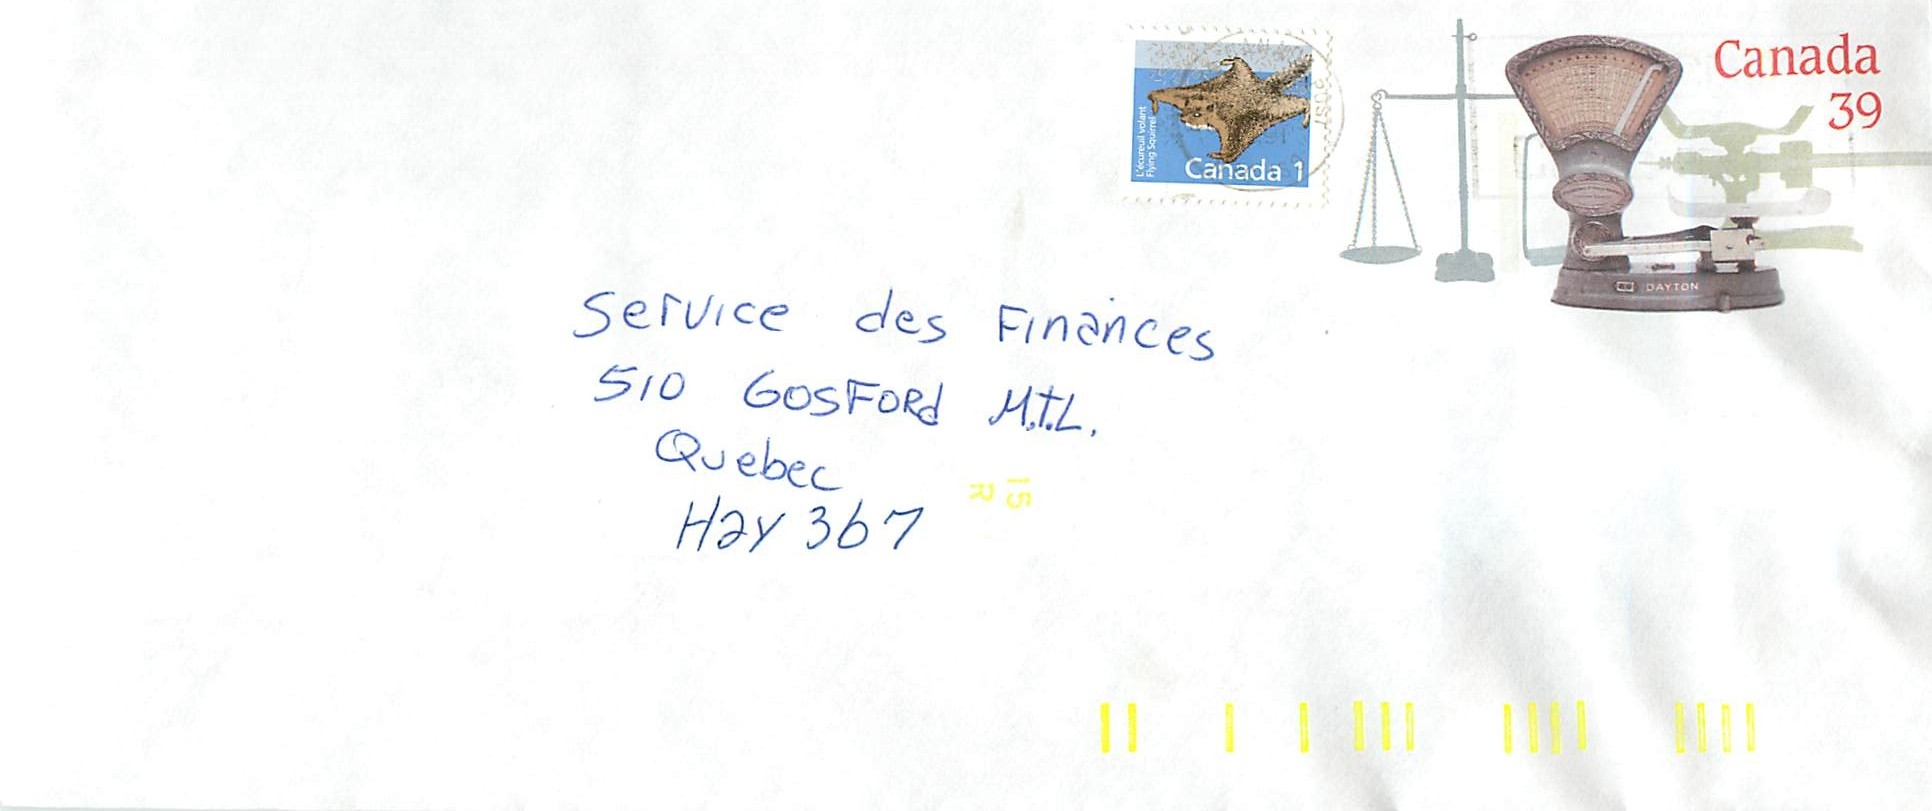 L'écureuil volant
Flying Squirrel
Canada 1
Canada
39
DAYTON
Service des Finances
510 GOSFORd M.T.L.
Quebec
Hay 3b7
15
R